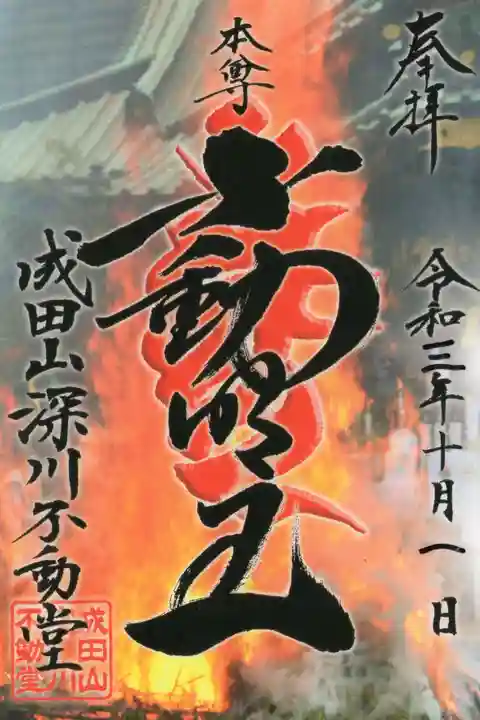 奉拝
令和三年十月一日
本尊
不動明王
成田山深川不動堂
成田山
深川
不動堂